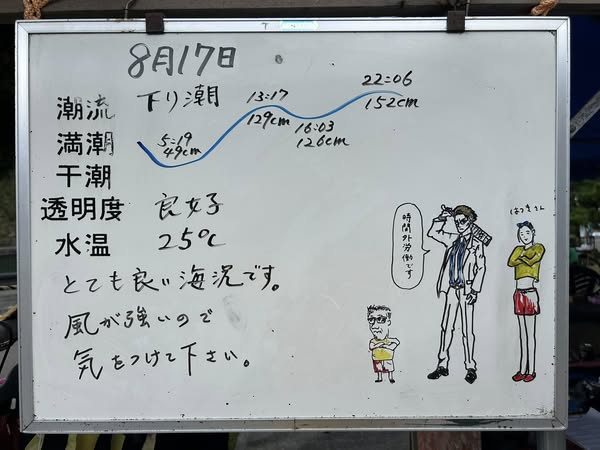 8月17日
潮流 下り潮
満潮
干潮
5:19
49cm
13:17
129cm
16:03
126cm
22:06
152cm
透明度 良好
水温 25℃
とても良い海況です。
風が強いので
気をつけて下さい。
時間外労働です
はつきさん